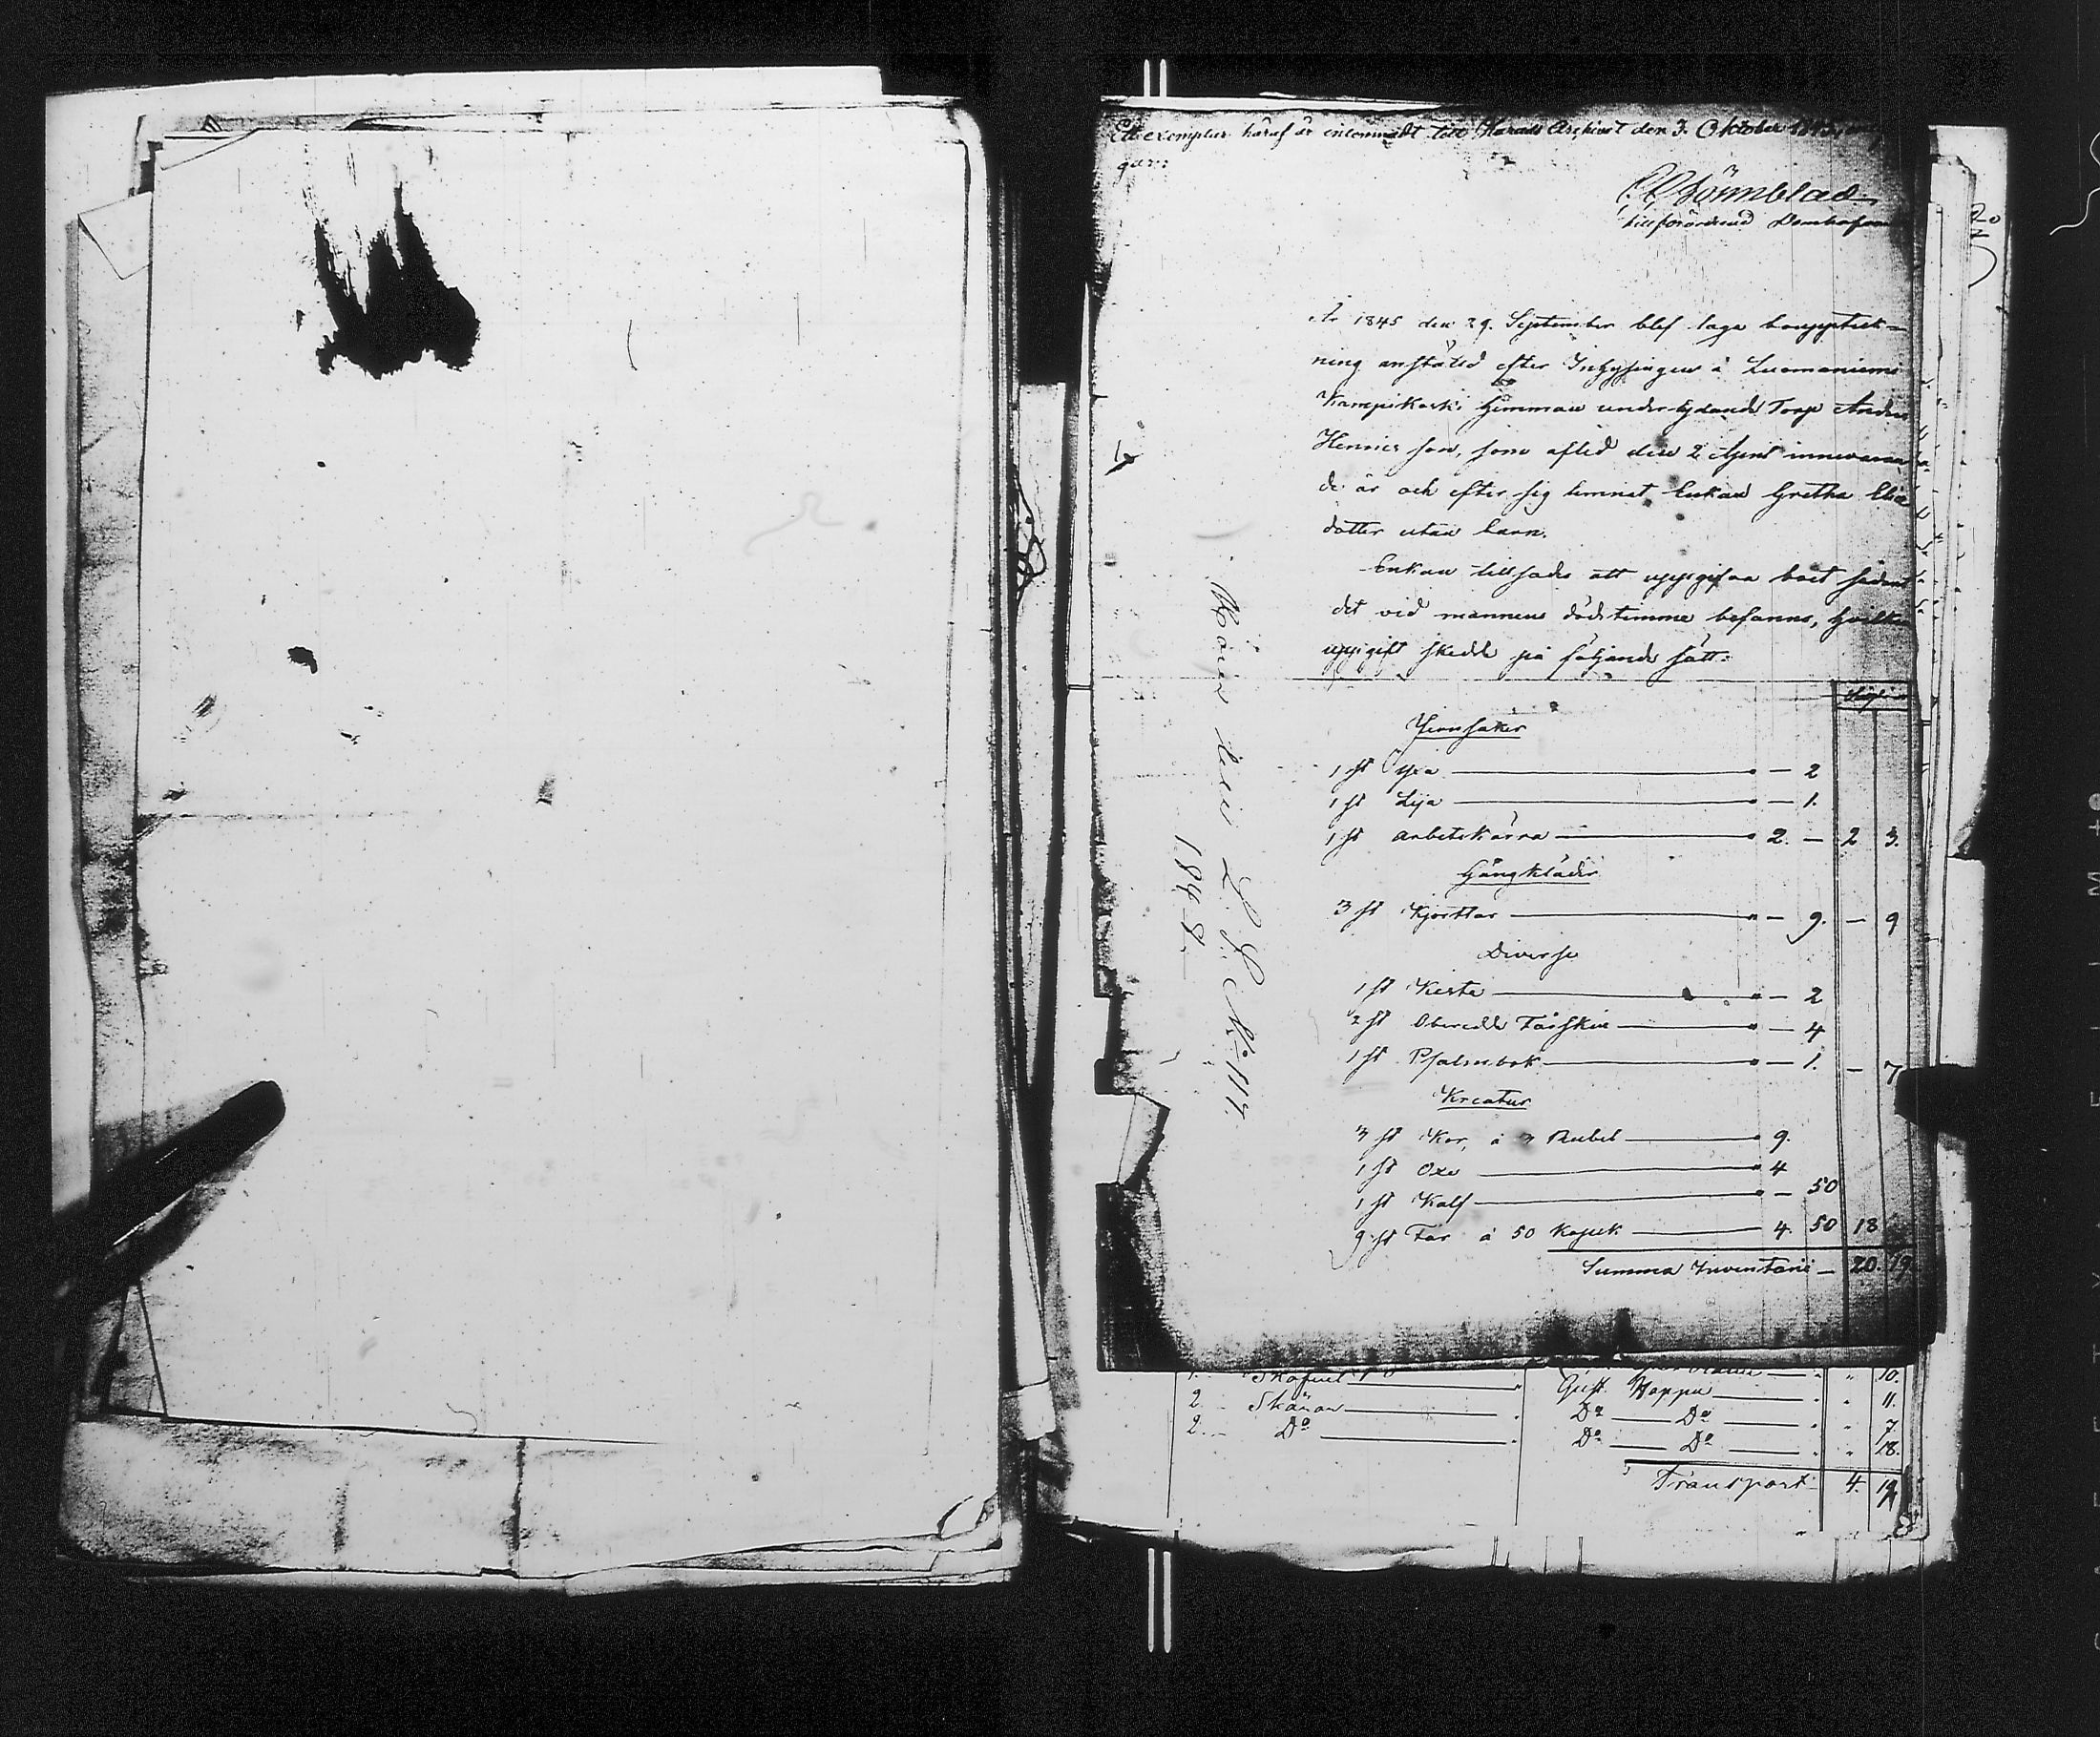 Ett exemplar häraf är inlemnadt till Härads Archivet den 3. Oktober 1845,
tillförordnad Domhafvan
År 1845 den 29. September blef laga bouppteck-
ning anstäld efter Inhysingen å Luomaniemi
Kampikoski Hemman underlydande Torp Anders
Henricsson, som afled den 2 April innevaran
de år och efter sig lemnat Enkan Gretha Elia
dotter utan barn.
Enkan tillsades att uppgifva boet sådant
det vid mannens dödstimme befanns, hvilken
uppgift skedde på följande sätt:
Silfver
Jernsaker
1 st Yxa — 2
1 st Lija — 1.
1 st Arbetskärra 2. — 2 3.
Gångkläder
3 st Skjortor — 9. — 9
Diverse
1 st Kista — 2
2 st Oberedde Fårskin — 4
1 st Psalmbok — 1. — 7
Kreatur
3 st Kor, á 3 Rubel 9.
1 st Oxe 4
1 st Kalf — 50
9 st Får á 50 kopek 4. 50 18
Summa Inventarii — 20. 19.
L. S. No 117.
1848.
10.
2 Skånor Gust. Hoppu 11.
2. Do Do Do 7.
Do Do 18.
Transport 4. 19